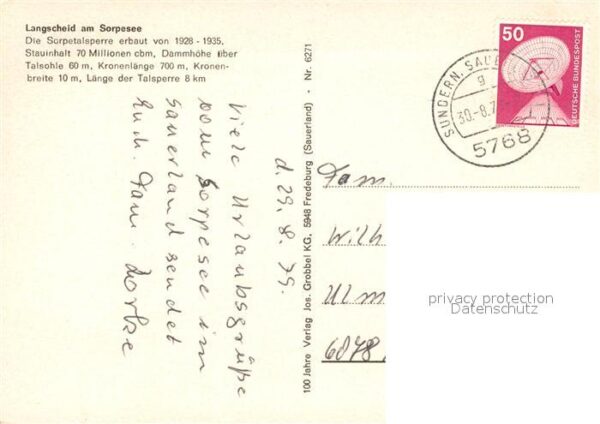 Langscheid am Sorpesee
Die Sorpetalsperre erbaut von 1928 - 1935,
Stauinhalt 70 Millionen cbm, Dammhöhe über
Talsohle 60 m, Kronenlänge 700 m, Kronen-
breite 10 m, Länge der Talsperre 8 km
d. 29. 8. 79.
Viele Urlaubsgrüße
vom Sorpesee im
Sauerland sendet
Euch. Fam.
100 Jahre Verlag Jos. Grobbel KG, 5948 Fredeburg (Sauerland) · Nr. 6271
50
DEUTSCHE BUNDESPOST
SUNDERN, SAUE
g
30.-8.7
5768
Fam.
Wilh
Ulm
6078
privacy protection
Datenschutz